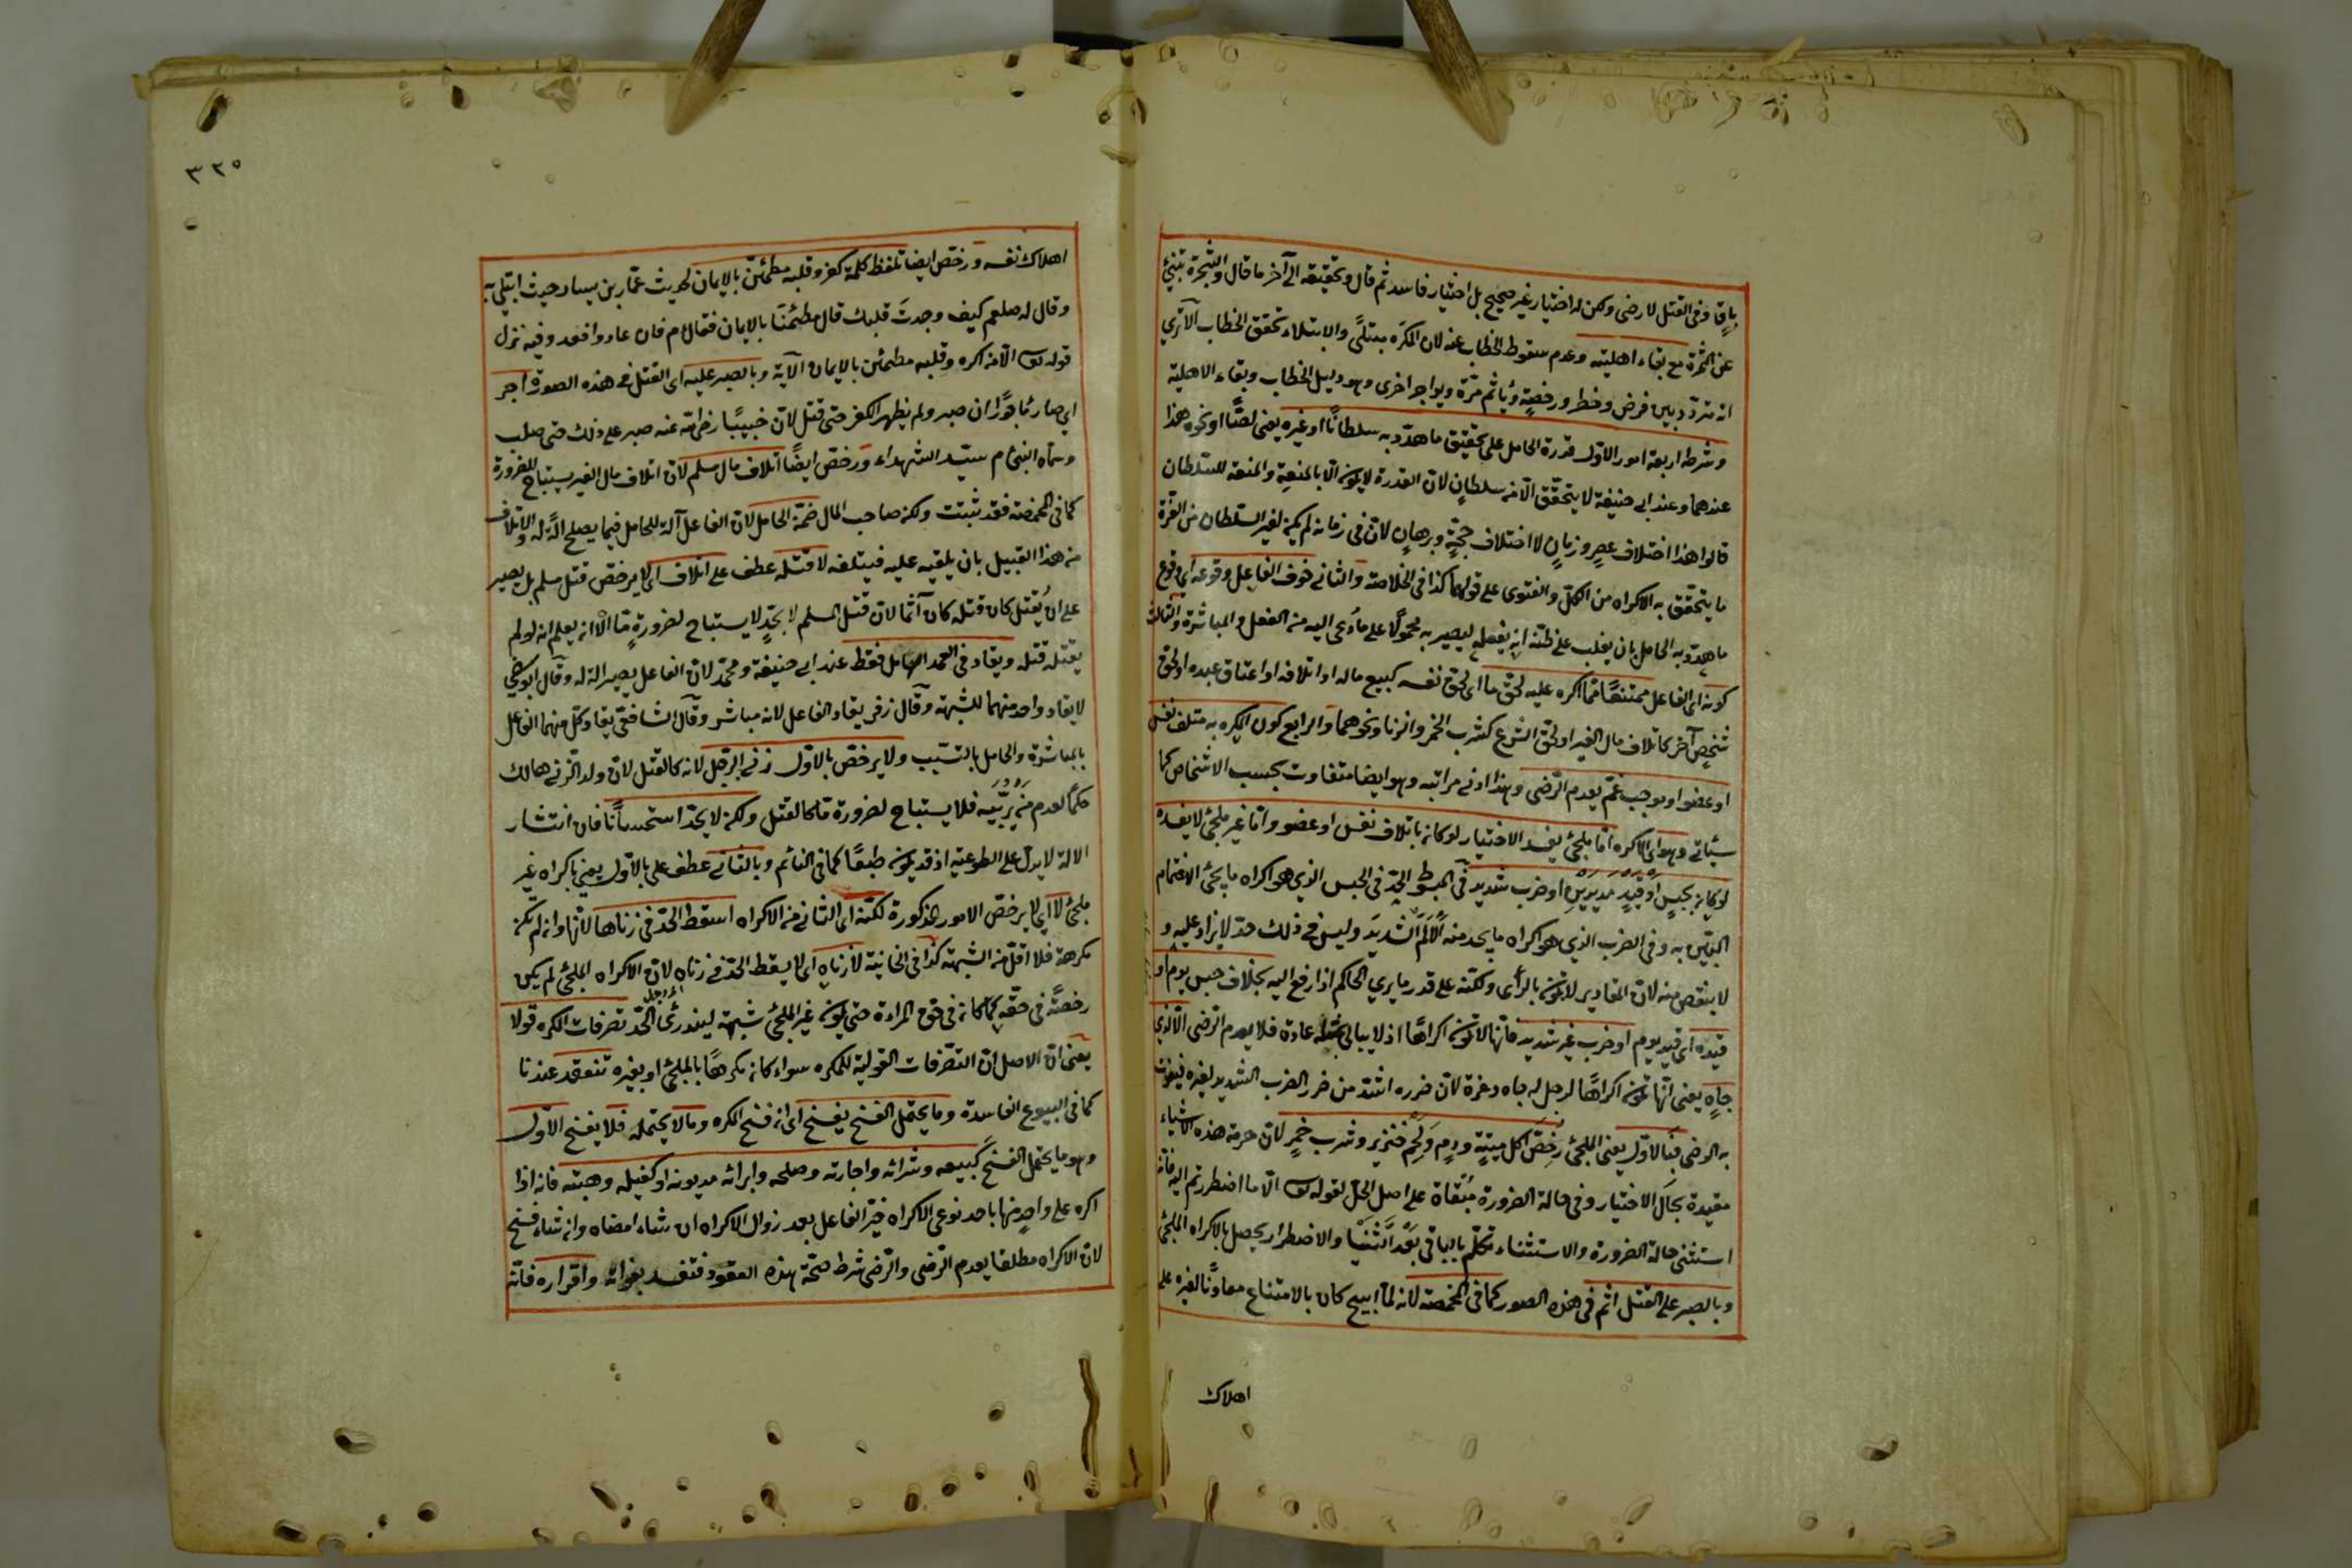 باقٍ وفي القتل لا رضى ولكن له اختيار غير صحيح بل اختيار فاسد ثم قال وتحقيقه الى آخر ما قال والشجرة تنبئ
عن الثمرة مع بقاء اهليته وعدم سقوط الخطاب عنه لان المكره مبتلًى والابتلاء تحقق الخطاب الا ترى
انه متردّد بين فرض وخطر ورخصةٍ ويأثم مرّة ويؤجر اخرى وهو دليل الخطاب وبقاء الاهلية
وشرطه اربعة امور الاوّل قدرة الحامل على تحقيق ما هدّد به سلطانًا او غيره يعنى لصًّا او نحوه هذا
عندهما وعند ابى حنيفة لا يتحقّق الّا من سلطانٍ لان القدرة لا يكون الّا بالمنعة والمنعة للسلطان
قالوا هذا اختلاف عصرٍ وزمانٍ لا اختلاف حجّةٍ وبرهانٍ لانّ فى زمانه لم يكن لغير السلطان من القوّة
ما يتحقّق به الاكراه من الكلّ والفتوى على قولهما كذا فى الخلاصة والثانى خوف الفاعل وقوعه اى وقوع
ما هدّد به الحامل بان يغلب على ظنّه انه يفعله ليصير به محمولًا على ما دُعى اليه من الفعل والمباشرة والثالث
كونه اى الفاعل ممتنعًا عمّا اكره عليه لحقّ ما اى لحق نفسه كبيع ماله او اتلافه او اعتاق عبده او لحق
شخصٍ آخر كاتلاف مال الغير او لحق الشرع كشرب الخمر والزنا ونحوهما والرابع كون المكره به متلف نفس
او عضو او موجب غمّ يعدم الرّضى وهذا ادنى مراتبه وهو ايضا متفاوت بحسب الاشخاص كما
سيأتى وهو اى الاكره امّا ملجئ يفسد الاختيار لو كان باتلاف نفس او عضو وامّا غير ملجئ لا يفسده
لو كان بحبسٍ او قيدٍ مديدين او ضرب شديد فى المبسوط الحدّ فى الحبس الذى هو اكراه ما يجئ الاغتمام
البيّن به وفى الضرب الذى هو اكراه ما يجد منه الالم الشديد وليس فى ذلك حدّ لا يزاد عليه و
لا ينقص منه لانّ المقادير لا تكون بالرأى ولكنّه على قدر ما يرى الحاكم اذا رفع اليه بخلاف حبس يوم او
قيده اى قيد يوم او ضرب غير شديد فانّها لا تكون اكراهًا اذ لا يبالى بمثله عادة فلا يعدم الرضى الّا لذى
جاهٍ يعنى انّها تكون اكراهًا لرجل له جاه وعزة لانّ ضرره اشدّ من ضرر الضرب الشديد لغيره فيفوت
به الرضى فبالاوّل يعنى الملجئ رُخِّصَ اكل ميتةٍ ودمٍ ولحم خنزير وشرب خمرٍ لانّ حرمة هذه الاشياء
مقيدة بحال الاختيار وفى حالة الضرورة مُبقاة على اصل الحلّ لقوله تع الّا ما اضطررتم اليه فانّه
استثنى حالة الضرورة والاستثناء تكلّم بالباقى بعد الثنيا والاضطرار يحصل بالاكراه الملجئ
وبالصبر على القتل اثم فى هذه الصور كما فى المخمصة لانه لمّا ابيح كان بالامتناع معاونًا لغيره على
اهلاك
٣٢٥
اهلاك نفسه ورخّص ايضا تلفظ كلمة كفر وقلبه مطمئنّ بالايمان لحديث عمّار بن يسار حيث ابتلى به
وقال له صلعم كيف وجدتَ قلبك قال مطمئنّا بالايمان فقال م فان عادوا فعد وفيه نزل
قوله تع الّا من اكره وقلبه مطمئن بالايمان الآية وبالصبر عليه اى القتل فى هذه الصورة اجر
اى صار مأجورًا ان صبر ولم يظهر الكفر حتى قتل لانّ خبيبًا رضى الله عنه صبر على ذلك حتى صلب
وسمّاه النبى م سيّد الشهداء ورخّص ايضًا اتلاف مال مسلم لانّ اتلاف مال الغير يستباح للضرورة
كما فى المخمصة فقد ثبتت ولكن صاحب المال ضمّن الحامل لانّ الفاعل آلة للحامل فيما يصلح الةً له والاتلاف
من هذا القبيل بان يلقيه عليه فيتلفه لا قتله عطف على اتلاف اى لا يرخّص قتل مسلم بل يصبر
على ان يُقتل كان قتله كان آثمًا لانّ قتل المسلم لا بحدٍّ لا يستباح لضرورةٍ مّا الّا انه يعلم انه لو لم
يقتله قتله ويقاد فى العمد الحامل فقط عند ابى حنيفة ومحمّد لانّ الفاعل يصير الة له وقال ابو
لا يقاد واحد منهما للشبهة وقال زفر يقاد الفاعل لانه مباشر وقال الشافعى يقاد كلّ منهما الفاعل
بالمباشرة والحامل بالتسبّب ولا يرخّص بالاوّل زنى الرجل لانه كالقتل لانّ ولد الزنى هالك
حكمًا لعدم من يربّيه فلا يستباح لضرورة مّا كالقتل ولكن لا يحدّ استحسانًا فان انتشار
الالة لا يدلّ على الطوعية اذ قد يكون طبعًا كما فى النائم وبالثانى عطف على بالاوّل يعنى باكراه غير
ملجئ لا اى لا يرخّص الامور المذكورة لكنّه اى الثانى من الاكراه اسقط الحدّ فى زناها لانّها وان لم تكن
مكرهة فلا اقلّ من الشبهة كذا فى الخانية لا زناه اى لا يسقط الحدّ فى زناه لانّ الاكراه الملجئ لم يكن
رخصةً فى حقّه كما كان فى حق المراءة حتى يكون غير الملجئ شبهة ليندرئ الحدّ تصرفات المكره قولا
يعنى انّ الاصل انّ التصرّفات القولية للمكره سواء كان مكرهًا بالملجئ او بغيره تنعقد عندنا
كما فى البيوع الفاسدة وما يحتمل الفسخ يفسخ اى ان فسخ المكره وما لا يحتمله فلا يفسخ الاوّل
وهو ما يحتمل الفسخ كبيعه وشرائه واجارته وصلحه وابرائه مديونه او كفيله وهبته فانه اذا
اكره على واحدٍ منها باحد نوعى الاكراه خيّر الفاعل بعد زوال الاكراه ان شاء امضاه وان شاء فسخ
لانّ الاكراه مطلقا يعدم الرّضى والرّضى شرط صحّة هذه العقود فتفسد بفواته واقراره فانّه